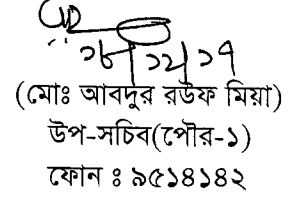 ১৮/১২/১৭
(মোঃ আবদুর রউফ মিয়া)
উপ-সচিব(পৌর-১)
ফোন ঃ ৯৫১৪১৪২